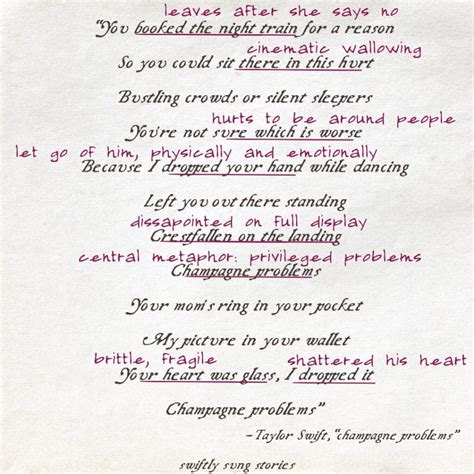 leaves after she says no
"You booked the night train for a reason
cinematic wallowing
So you could sit there in this hurt
Bustling crowds or silent sleepers
hurts to be around people
You're not sure which is worse
let go of him, physically and emotionally
Because I dropped your hand while dancing
Left you out there standing
dissapointed on full display
Crestfallen on the landing
central metaphor: privileged problems
Champagne problems
Your mom's ring in your pocket
My picture in your wallet
brittle, fragile shattered his heart
Your heart was glass, I dropped it
Champagne problems"
– Taylor Swift, "champagne problems"
swiftly sung stories